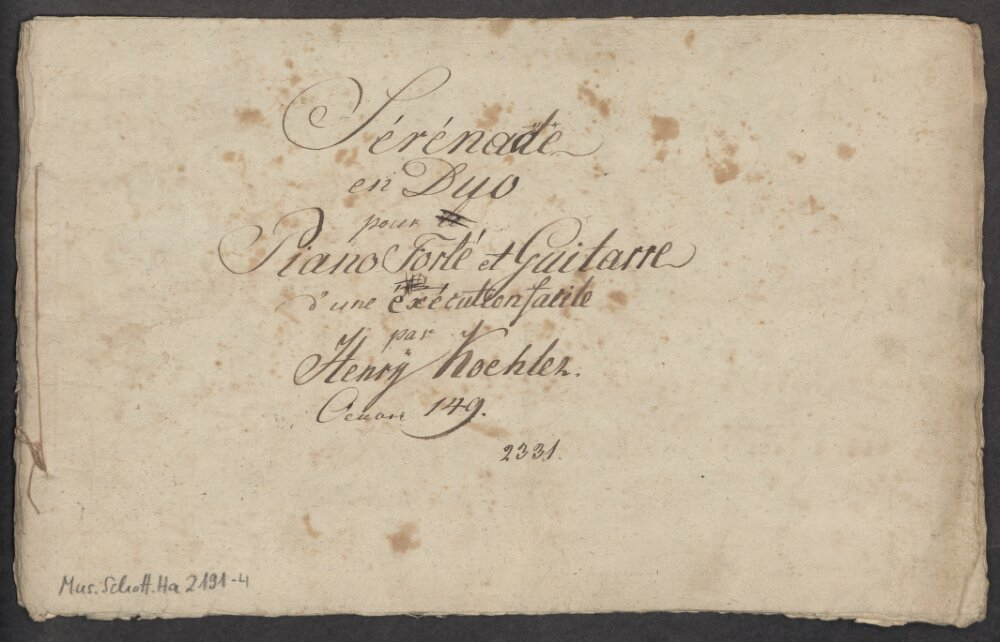 Sérénade
en Duo
pour
Piano Forté et Guitarre
d'une exécution facile
par
Henrÿ Koehler.
Oeuvre 149.
2331.
Mus. Schott. Ha 2191-4